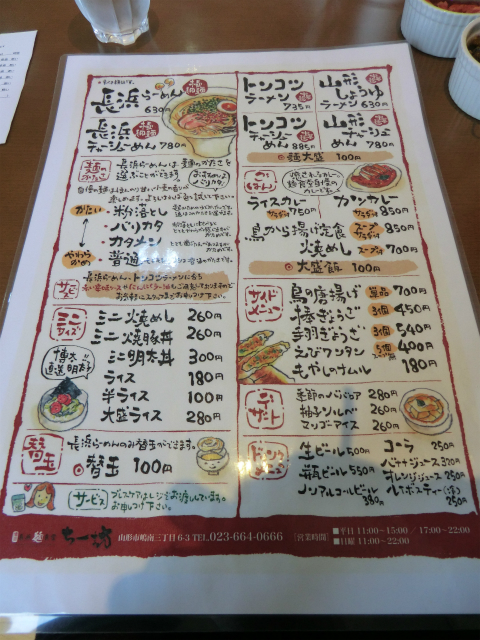 長浜らーめん 極細麺
630円
長浜チャーシューめん 極細麺
780円
トンコツラーメン 735円
山形しょうゆラーメン 630円
トンコツチャーシューめん 885円
山形チャーシューめん 780円
麺大盛 100円
麺のかたさ
長浜らーめんは麺のかたさを
選ぶことができます
かたい
粉落とし
バリカタ
カタメン
普通
やわらかめ
長浜らーめん、トンコツラーメンには
ごはん
ライスカレー サラダ付 750円
カツカレー サラダ付 850円
鳥から揚げ定食 スープ サラダ付 850円
焼めし スープ付 700円
大盛飯 100円
ミニ&ライス
ミニ焼めし 260円
ミニ焼豚丼 260円
ミニ明太丼 300円
博多直送明太子
ライス 180円
半ライス 100円
大盛ライス 280円
サイドメニュー
鳥の唐揚げ 単品 700円
棒ぎょうざ 3個 450円
手羽ぎょうざ 3個 540円
えびワンタン 5個 400円
もやしのナムル 180円
替玉
長浜らーめんのみ替玉ができます。
替玉 100円
サービス
ブレスケアはレジにお渡ししています。
お申しつけ下さい。
デザート
季節のババロア 280円
柚子シャルベ 260円
マンゴーアイス 260円
ドリンク
生ビール 500円
瓶ビール 550円
ノンアルコールビール 380円
コーラ 250円
バナナジュース 320円
オレンジジュース 250円
250円
山形市嶋南三丁目6-3 TEL.023-664-0666
［営業時間］
■平日 11:00～15:00 / 17:00～22:00
■日曜 11:00～22:00